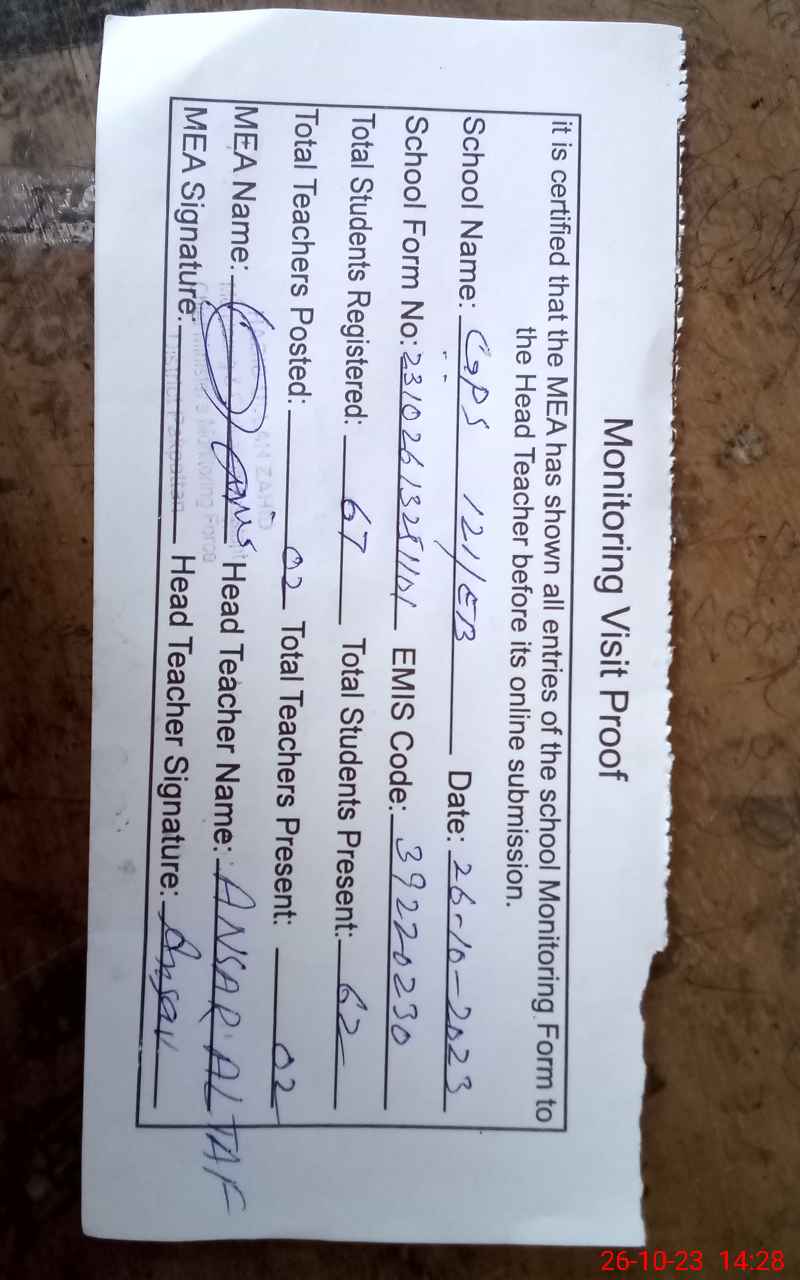 Monitoring Visit Proof
it is certified that the MEA has shown all entries of the school Monitoring Form to
the Head Teacher before its online submission.
School Name: GPS 121/EB Date: 26-10-2023
School Form No: EMIS Code: 39220230
Total Students Registered: 67 Total Students Present: 62
Total Teachers Posted: 02 Total Teachers Present: 02
MEA Name: Head Teacher Name: ANSAR ALTAF
MEA Signature: Head Teacher Signature: Ansar
AN ZAHID
Monitoring Force
District Pakpattan
26-10-23 14:28